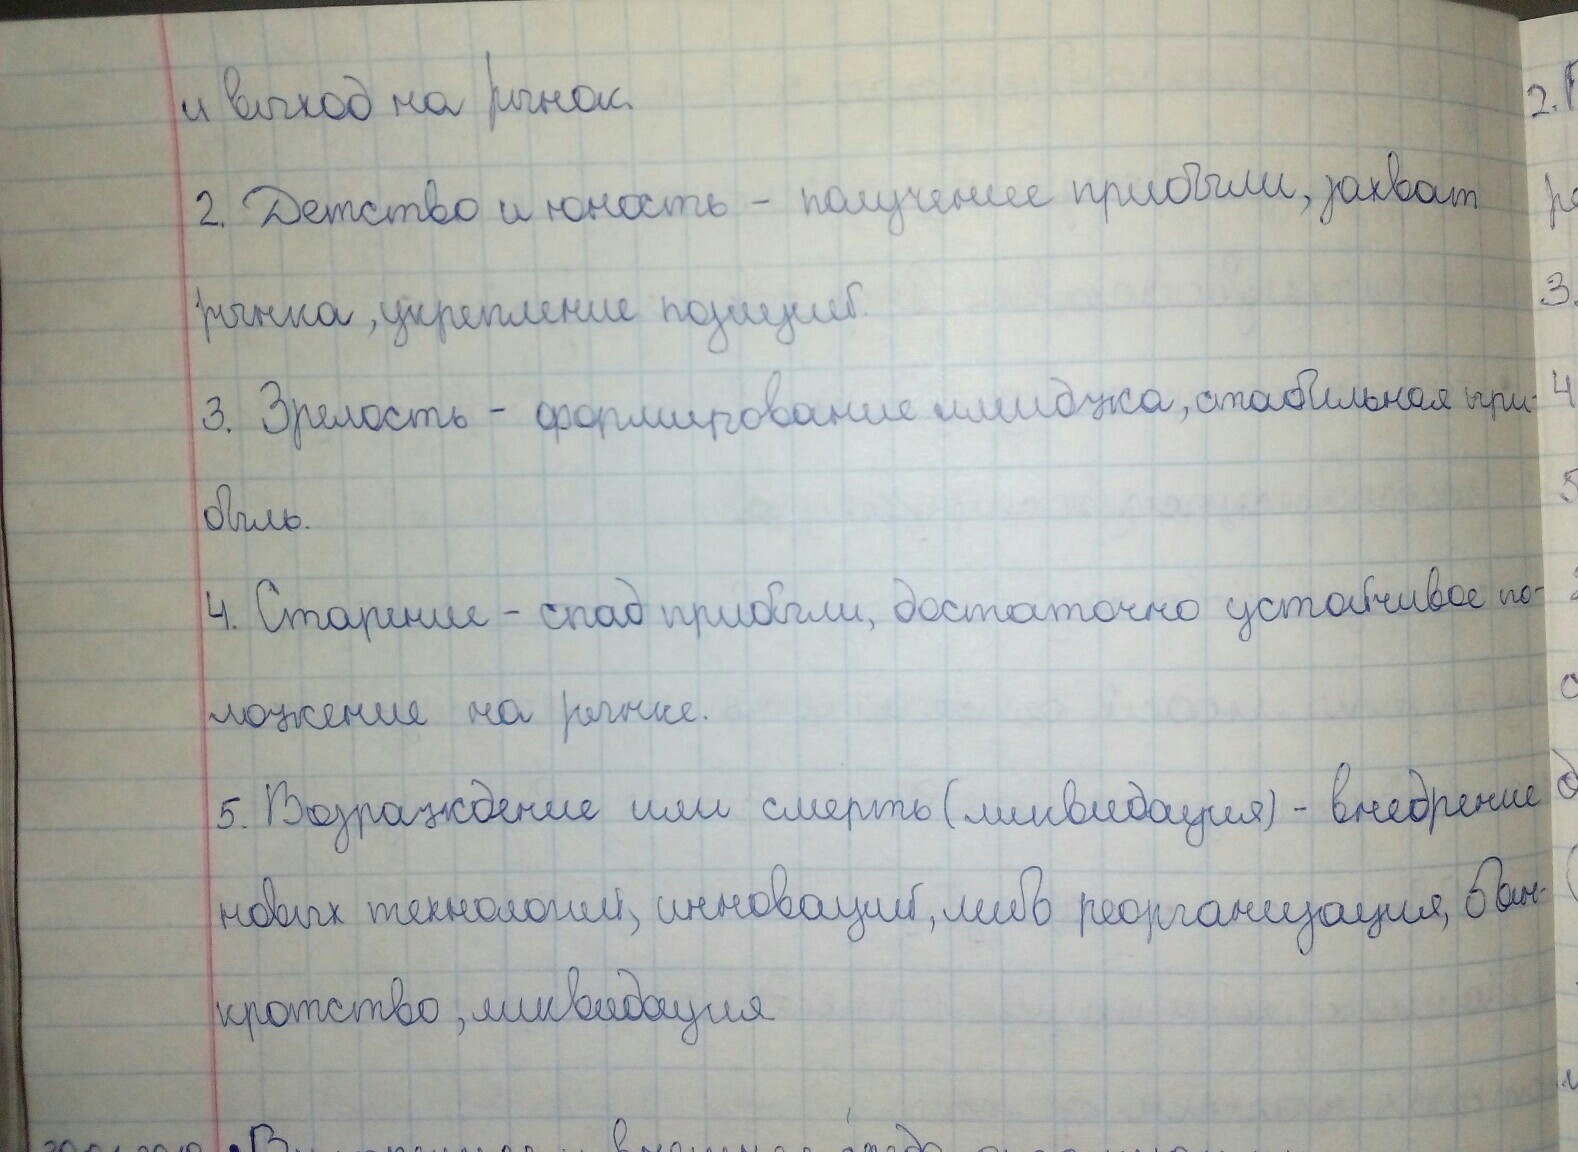 и выход на рынок.
2. Детство и юность - получение прибыли, захват
рынка, укрепление позиций.
3. Зрелость - формирование имиджа, стабильная при-
быль.
4. Старение - спад прибыли, достаточно устойчивое по-
ложение на рынке.
5. Возраждение или смерть (ликвидация) - внедрение
новых технологий, инноваций, либо реорганизация, бан-
кротство, ликвидация
2.
3.
4
5